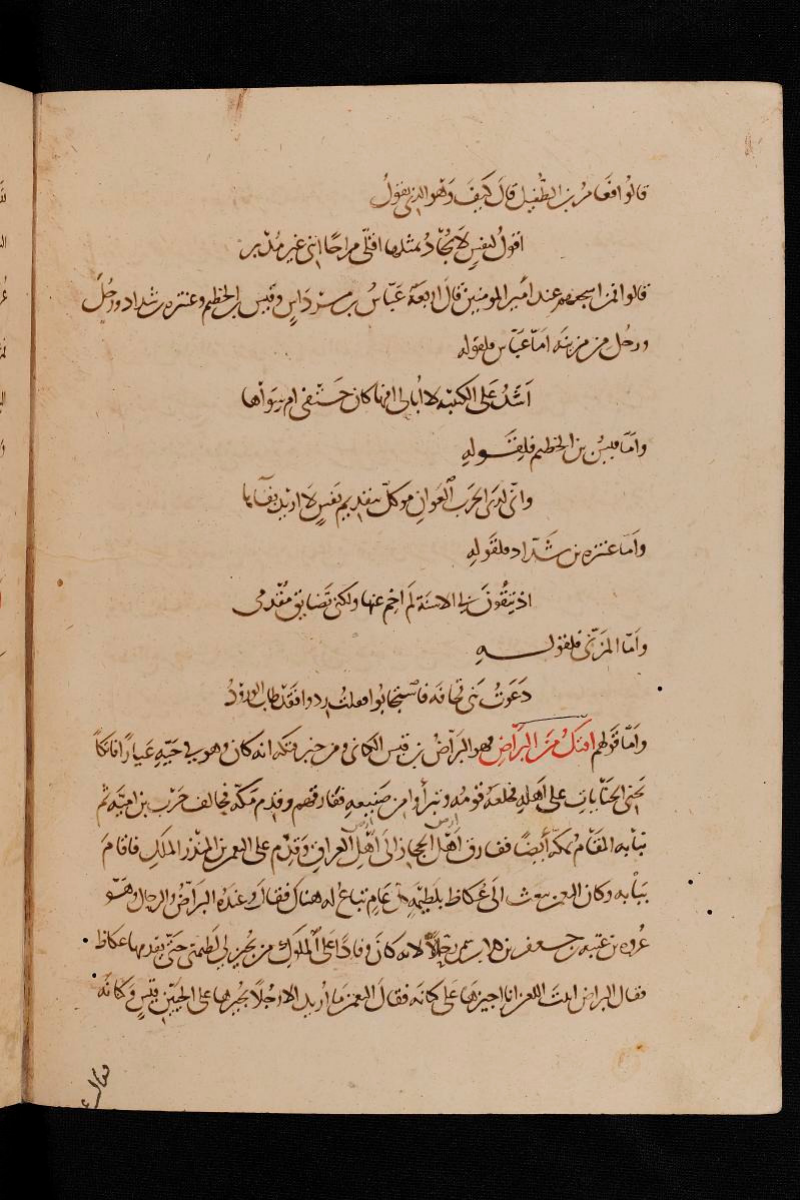 قالوا فعامر بن الطفيل قال كيف وهو الذي يقول
اقول لنفس لا يجاد بمثلها اقلي مراحا انني غير مدبر
قالوا فمن اشجعهم عند امير المومنين قال اربعة عباس بن مرداس وقيس بن الخطيم وعنتره بن شداد ورجل
ورجل من مزينه اما عباس فلقوله
اشد على الكتيبه لا ابالي افيها كان حتفي ام سواها
واما قيس بن الخطيم فلقوله
واني لدى الحرب العوان موكل بتقديم نفس لا اريد بقآها
واما عنتره بن شداد فلقوله
اذ يتقون بي الاسنة لم اخم عنها ولكني تضايق مقدمي
واما المزني فلقوله
دعوت بني قحافه فاستجابوا فقلت ردوا فقد طاب الورود
واما قولهم افتك من البراض فهو البراض بن قيس الكناني ومن خبر فتكه انه كان وهو في حيه عيارا فاتكا
يجني الجنايات على اهله فخلعه قومه وتبرأوا من صنيعه ففارقهم وقدم مكه فحالف حرب بن اميه ثم
نبا به المقام بمكه أيضا ففارق ارض اهل الحجاز الى ارض اهل العراق وقدم على النعمن بن المنذر الملك فاقام
ببابه وكان النعمن يبعث الى عكاظ بلطيمه كل عام تباع له هناك فقال وعنده البراض والرحال وهو
عروه بن عتبه بن جعفر بن كلاب سمي رحالا لانه كان وفادا على الملوك من يجيز لي لطيمتي حتى يقدمها عكاظ
فقال البراض ابيت اللعن انا اجيزها على كنانه فقال النعمن ما اريد الا رجلا يجيرها على الحيين قيس وكنانه
فقال